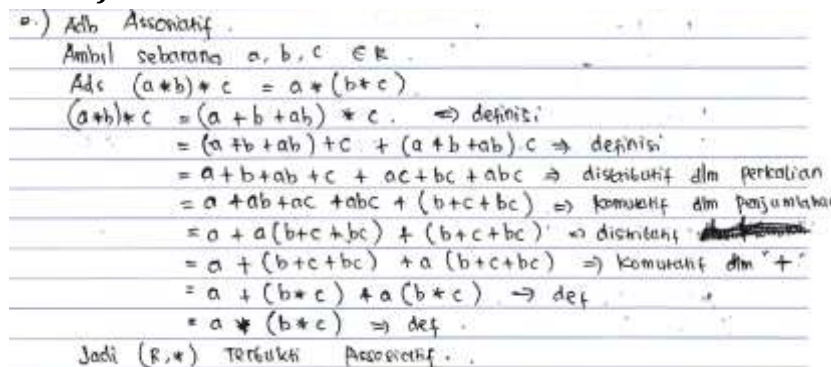 a.) Adb Assosiatif.
Ambil sebarang a, b, c ∈ R.
Ads (a*b)*c = a*(b*c)
(a*b)*c = (a + b + ab) * c. => definisi
= (a + b + ab) + c + (a + b + ab).c => definisi
= a + b + ab + c + ac + bc + abc => distributif dlm perkalian
= a + ab + ac + abc + (b + c + bc) => komutatif dlm penjumlahan
= a + a(b + c + bc) + (b + c + bc) => distributif
= a + (b + c + bc) + a (b + c + bc) => komutatif dlm "+"
= a + (b * c) + a (b * c) -> def
= a * (b * c) => def.
Jadi (R,*) Terbukti Assosiatif.